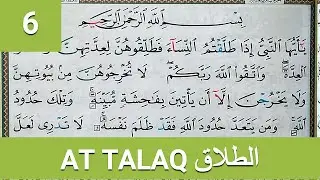 6
بِسْمِ اللَّهِ الرَّحْمَٰنِ الرَّحِيمِ
يَٰٓأَيُّهَا النَّبِىُّ إِذَا طَلَّقْتُمُ النِّسَآءَ فَطَلِّقُوهُنَّ لِعِدَّتِهِنَّ وَأَحْصُوا
الْعِدَّةَ وَاتَّقُوا اللَّهَ رَبَّكُمْ لَا تُخْرِجُوهُنَّ مِنۢ بُيُوتِهِنَّ
وَلَا يَخْرُجْنَ إِلَّآ أَن يَأْتِينَ بِفَٰحِشَةٍ مُّبَيِّنَةٍ وَتِلْكَ حُدُودُ
اللَّهِ وَمَن يَتَعَدَّ حُدُودَ اللَّهِ فَقَدْ ظَلَمَ نَفْسَهُۥ لَا تَدْرِى لَعَلَّ
AT TALAQ الطلاق